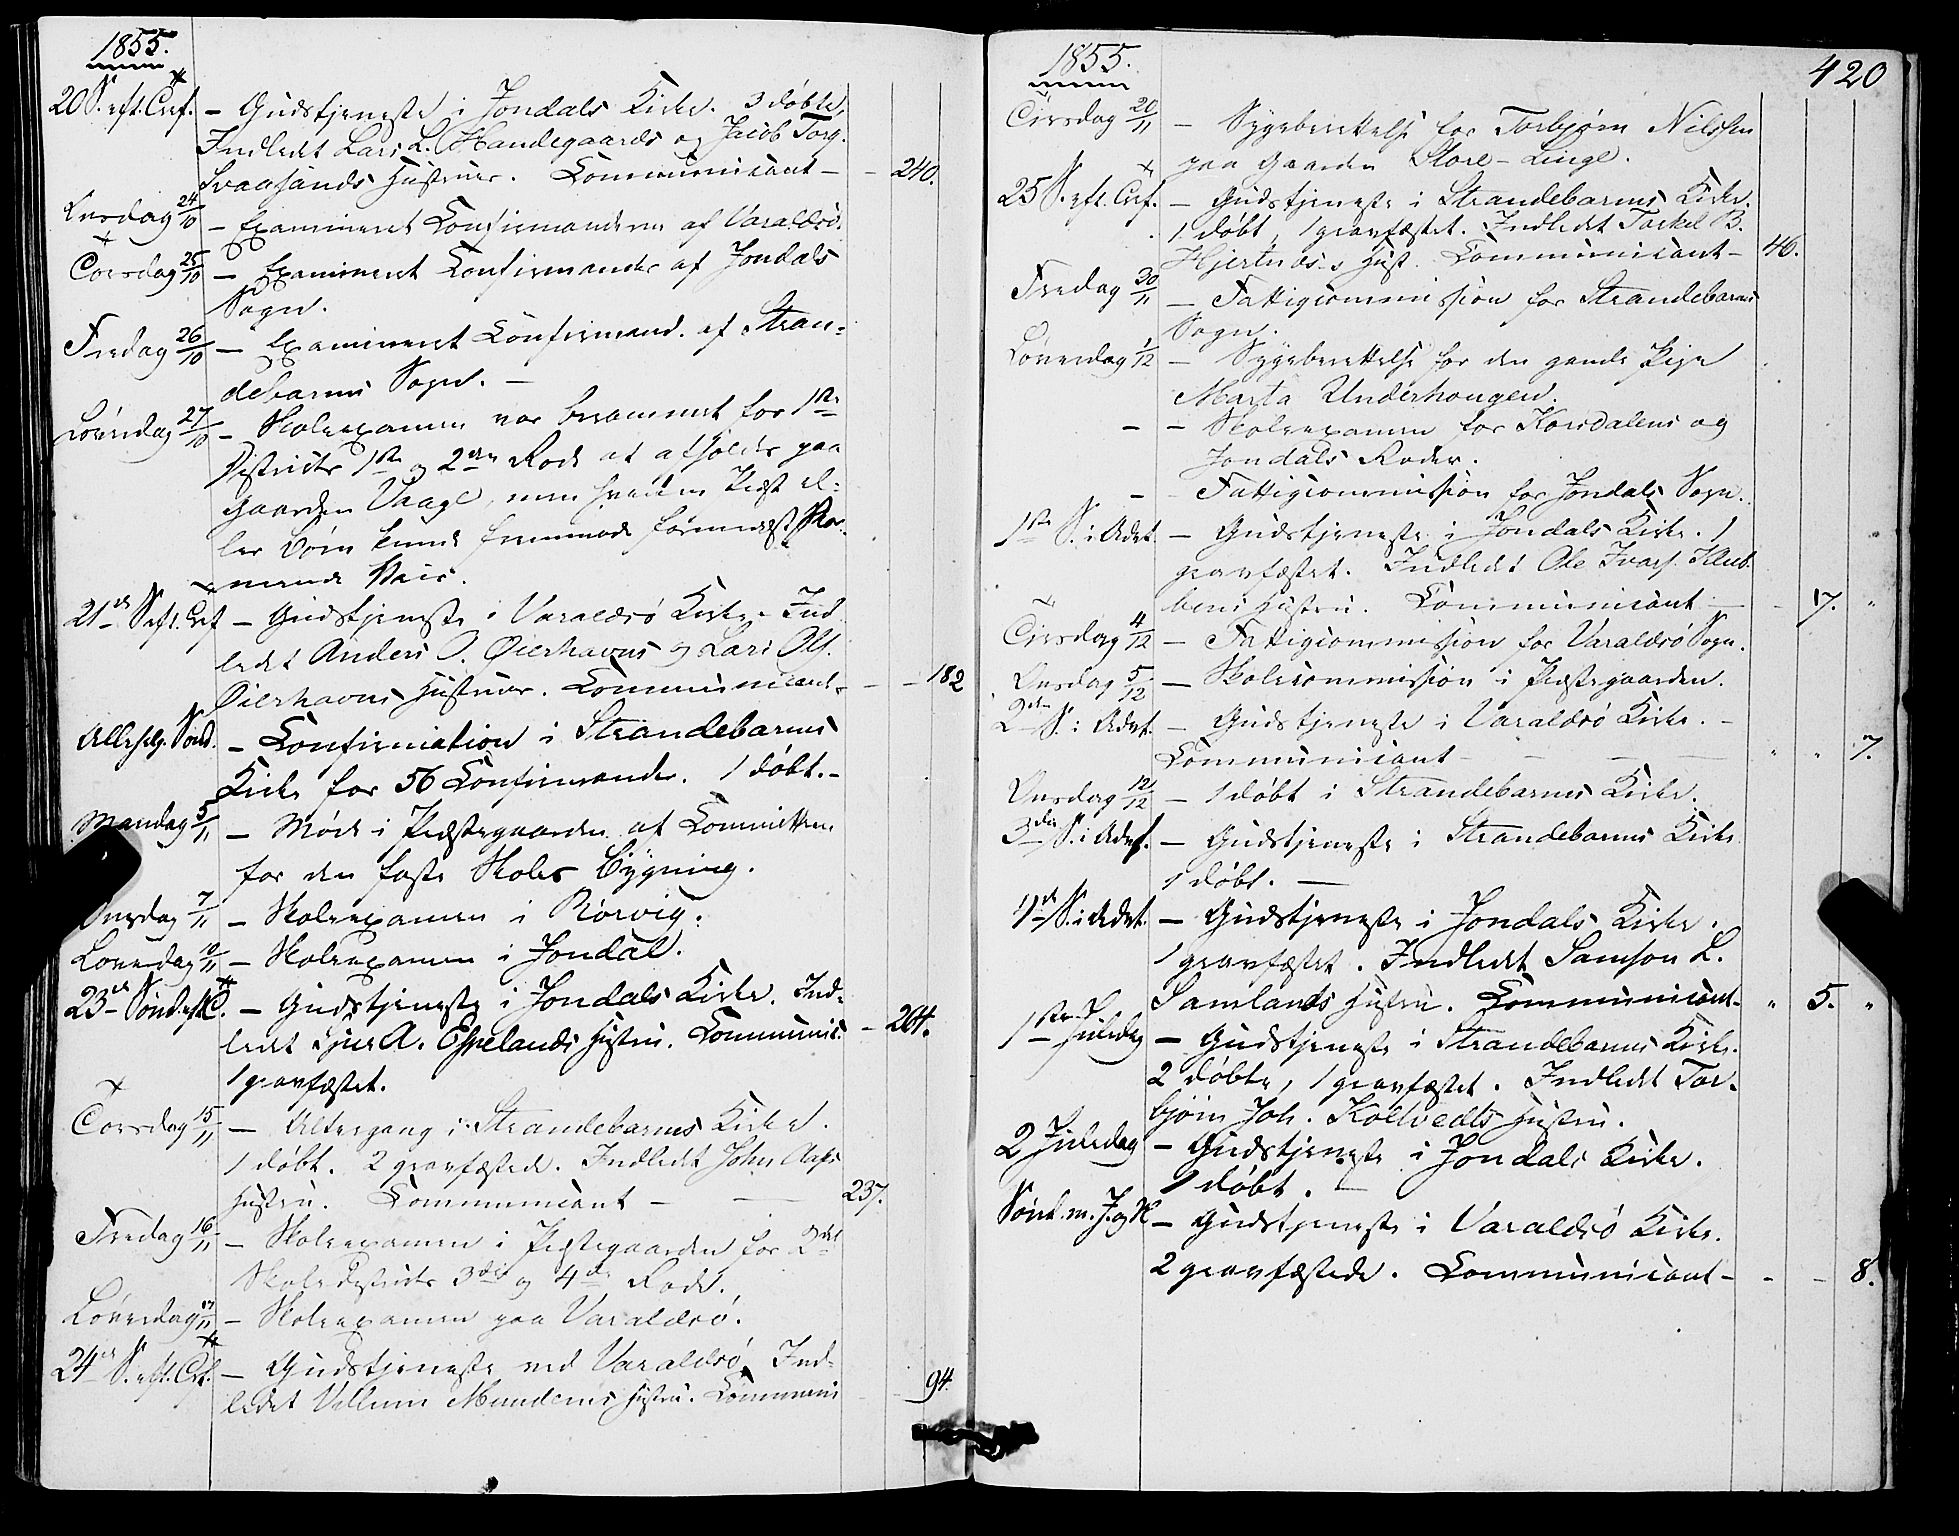 1855.
20 S. eft. Tref. – Gudstjeneste i Jondals Kirke. 3 døbte,
Indledt Lars L. Handegaards og Jacob Torg.
Svaasands Hustruer. Communicant – – 240.
Onsdag 24/10 – Examineret Confirmanderne af Varaldsø.
Torsdag 25/10 – Examineret Confirmander af Jondals
Sogn.
Fredag 26/10 – Examineret Confirmand. af Stran-
debarms Sogn. –
Løverdag 27/10 – Skoleexamen var berammet for 1ste
Districts 1ste og 2den Rode at afholdes paa
Gaarden Vaage, men hverken Præst el-
ler Børn kunde fremmøde formedelst Stor-
mende Veir.
21de S. eft. Tref – Gudstjeneste i Varaldsø Kirke. Ind-
ledt Anders O. Øierhavns og Lars Ols.
Øierhavns Hustruer. Communicant – – 182
Allehelg. Sønd. – Confirmation i Strandebarms
Kirke for 56 Confirmander. 1 døbt. –
Mandag 5/11 – Møde i Præstegaarden af Committeen
for den faste Skoles Bygning.
Onsdag 7/11 – Skoleexamen i Rørvig.
Løverdag 10/11 – Skoleexamen i Jondal.
23de Sønd. eft. T. – Gudstjeneste i Jondals Kirke. Ind-
ledt Sjur A. Espelands Hustru. Communic. – 204.
1 gravfæstet.
Torsdag 15/11 – Altergang i Strandebarms Kirke.
1 døbt. 2 gravfæstede. Indledt John Aass
Hustru. Communicant – – 237.
Fredag 16/11 – Skoleexamen i Præstegaarden for 2det
Skoledistricts 3die og 4de Rode.
Løverdag 17/11 – Skoleexamen paa Varaldsø.
24de S. eft. Tref. – Gudstjeneste ved Varaldsø. Ind-
ledet Villum Mundems Hustru. Communic – 94.
1855.
420
Tirsdag 20/11 – Sygeberettelse for Torbjørn Nilssen
paa Gaarden Store-Linge.
25 S. eft. Tref. – Gudstjeneste i Strandebarms Kirke.
1 døbt, 1 gravfæstet. Indledt Torkel B.
Hjertnæs's Hust. Communicant – 46.
Fredag 30/11 – Fattigcommission for Strandebarms
Sogn.
Løverdag 1/12 – Sygeberettelse for den gamle Pige
Marta Underhougen.
– – Skoleexamen for Korsdalens og
Jondals Roder.
– – Fattigcommission for Jondals Sogn.
1ste S. i Advt. – Gudstjeneste i Jondals Kirke. 1
gravfæstet. Indledt Ole Ivars. Klub-
bens Hustru. Communicant – – 17. "
Tirsdag 4/12 – Fattigcommission for Varaldsø Sogn.
Onsdag 5/12 – Skolecommission i Præstegaarden.
2den S. i Advt. – Gudstjeneste i Varaldsø Kirke. –
Communicant – – – " " 7.
Onsdag 12/12 – 1 døbt i Strandebarms Kirke.
3die S. i Advt. – Gudstjeneste i Strandebarms Kirke
1 døbt. –
4de S. i Advt. – Gudstjeneste i Jondals Kirke.
1 gravfæstet. Indledt Samson L.
Samlands Hustru. Communicant – " 5. "
1ste Juledag – Gudstjeneste i Strandebarms Kirke.
2 døbte, 1 gravfæstet. Indledt Tor-
bjørn Joh. Koltvedts Hustru.
2 Juledag – Gudstjeneste i Jondals Kirke.
1 døbt. –
Sønd. m. J. og N – Gudstjeneste i Varaldsø Kirke.
2 gravfæstede. Communicant – – – 8.